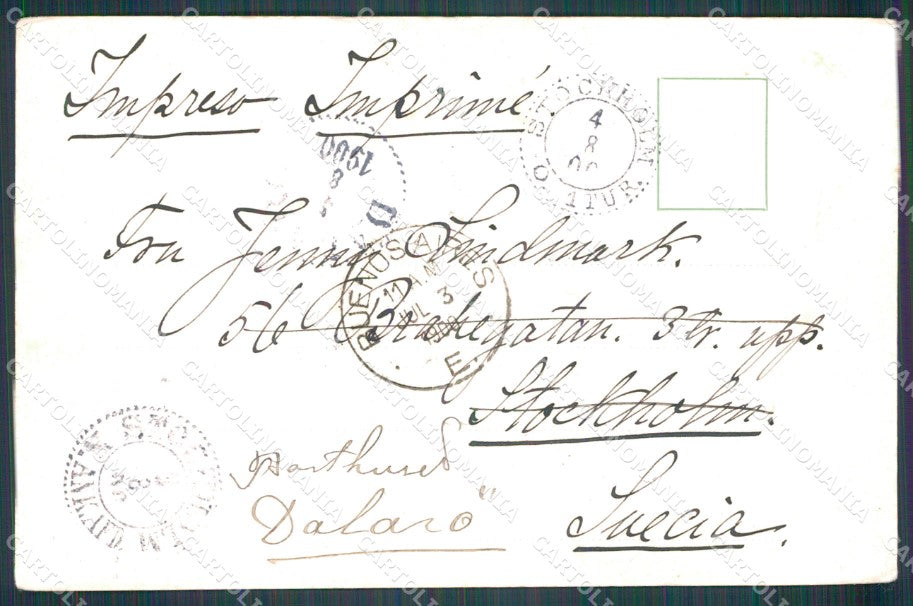 Impreso Imprimé
STOCKHOLM
4
8
00
1. TUR.
1900
8
D
Fru Jenny Lindmark.
BUENOS AIRES
11 A.M
JUL 3
1900
E
56 Brahegatan. 3 tr. upp.
Stockholm.
Dalarö
Suecia.
CARTOLINOMANIA